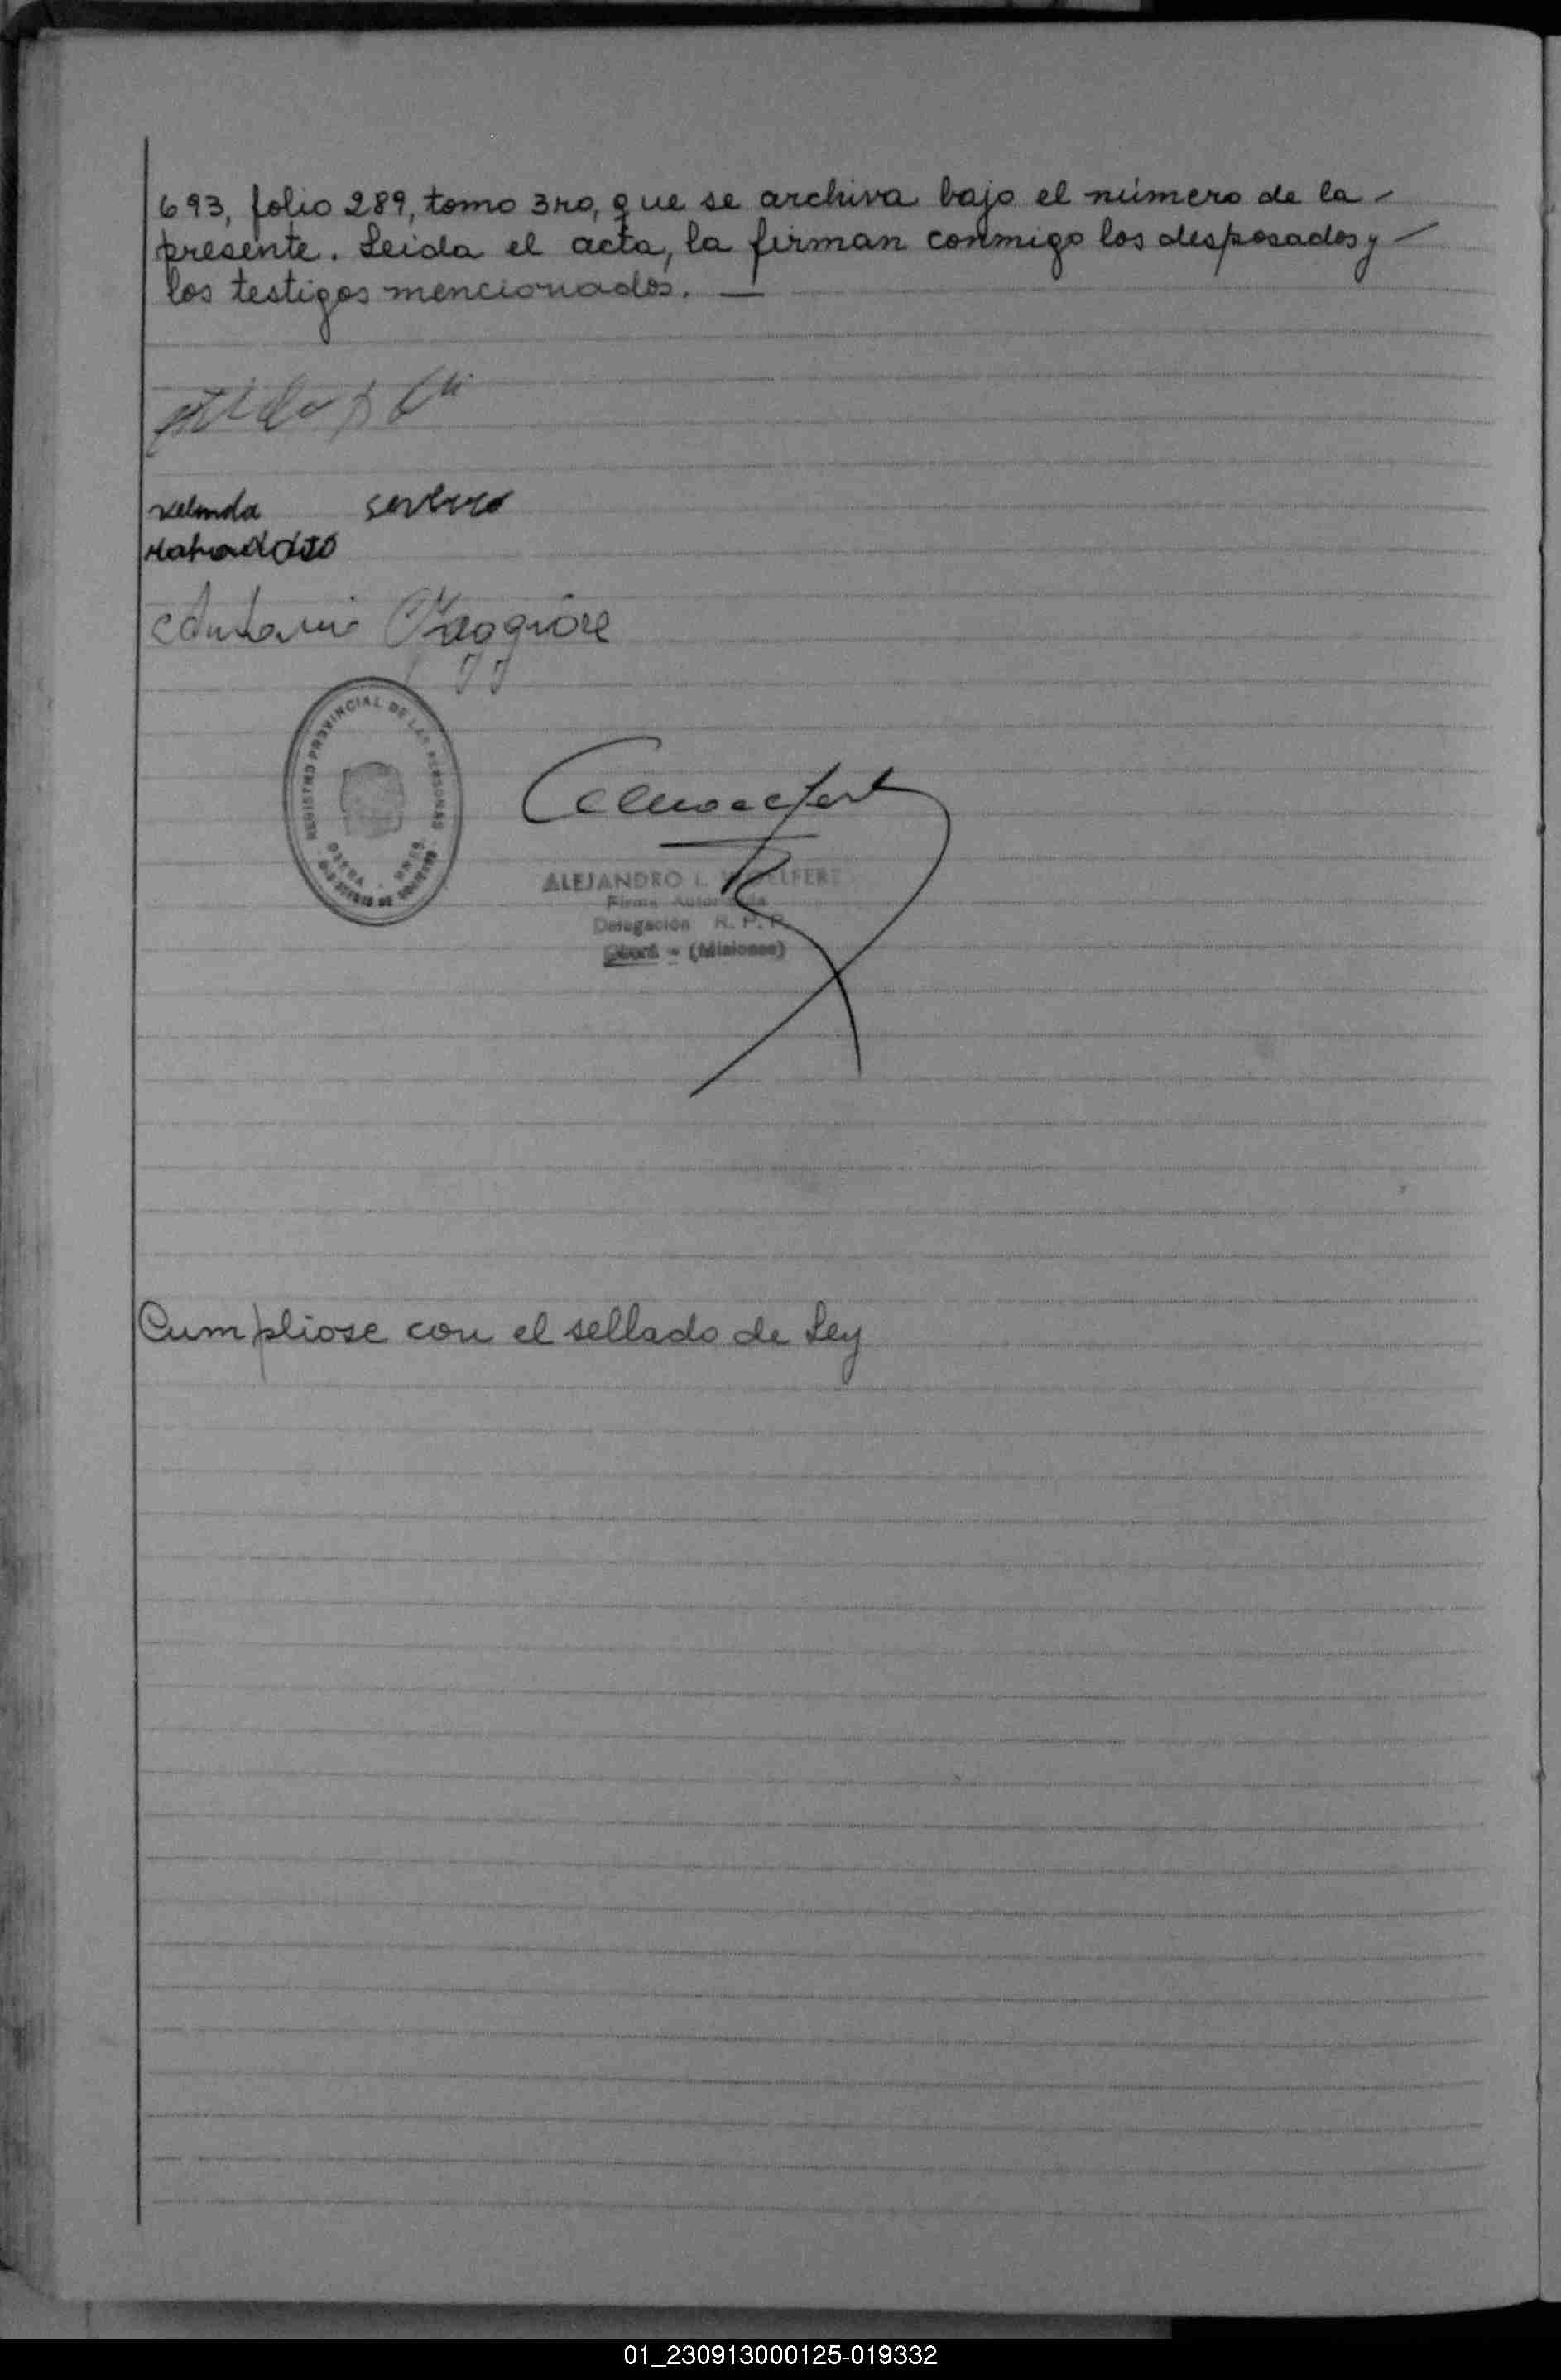 693, folio 289, tomo 3ro, que se archiva bajo el número de la -
presente. Leida el acta, la firman conmigo los desposados y -
los testigos mencionados. —
Maggiore
REGISTRO PROVINCIAL DE LAS PERSONAS
ALEJANDRO L.
Firma Autorizada
Delegación R. P. P.
Oberá - (Misiones)
Cumpliose con el sellado de Ley
01_230913000125-019332